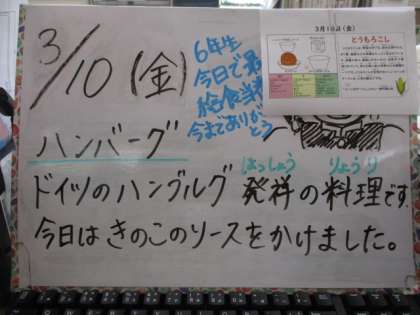 3/10(金)
6年生
今日で最
給食当番
今までありが
とう
3月10日(金)
とうもろこし
ハンバーグ
はっしょう りょうり
ドイツのハンブルグ発祥の料理です
今日はきのこのソースをかけました。